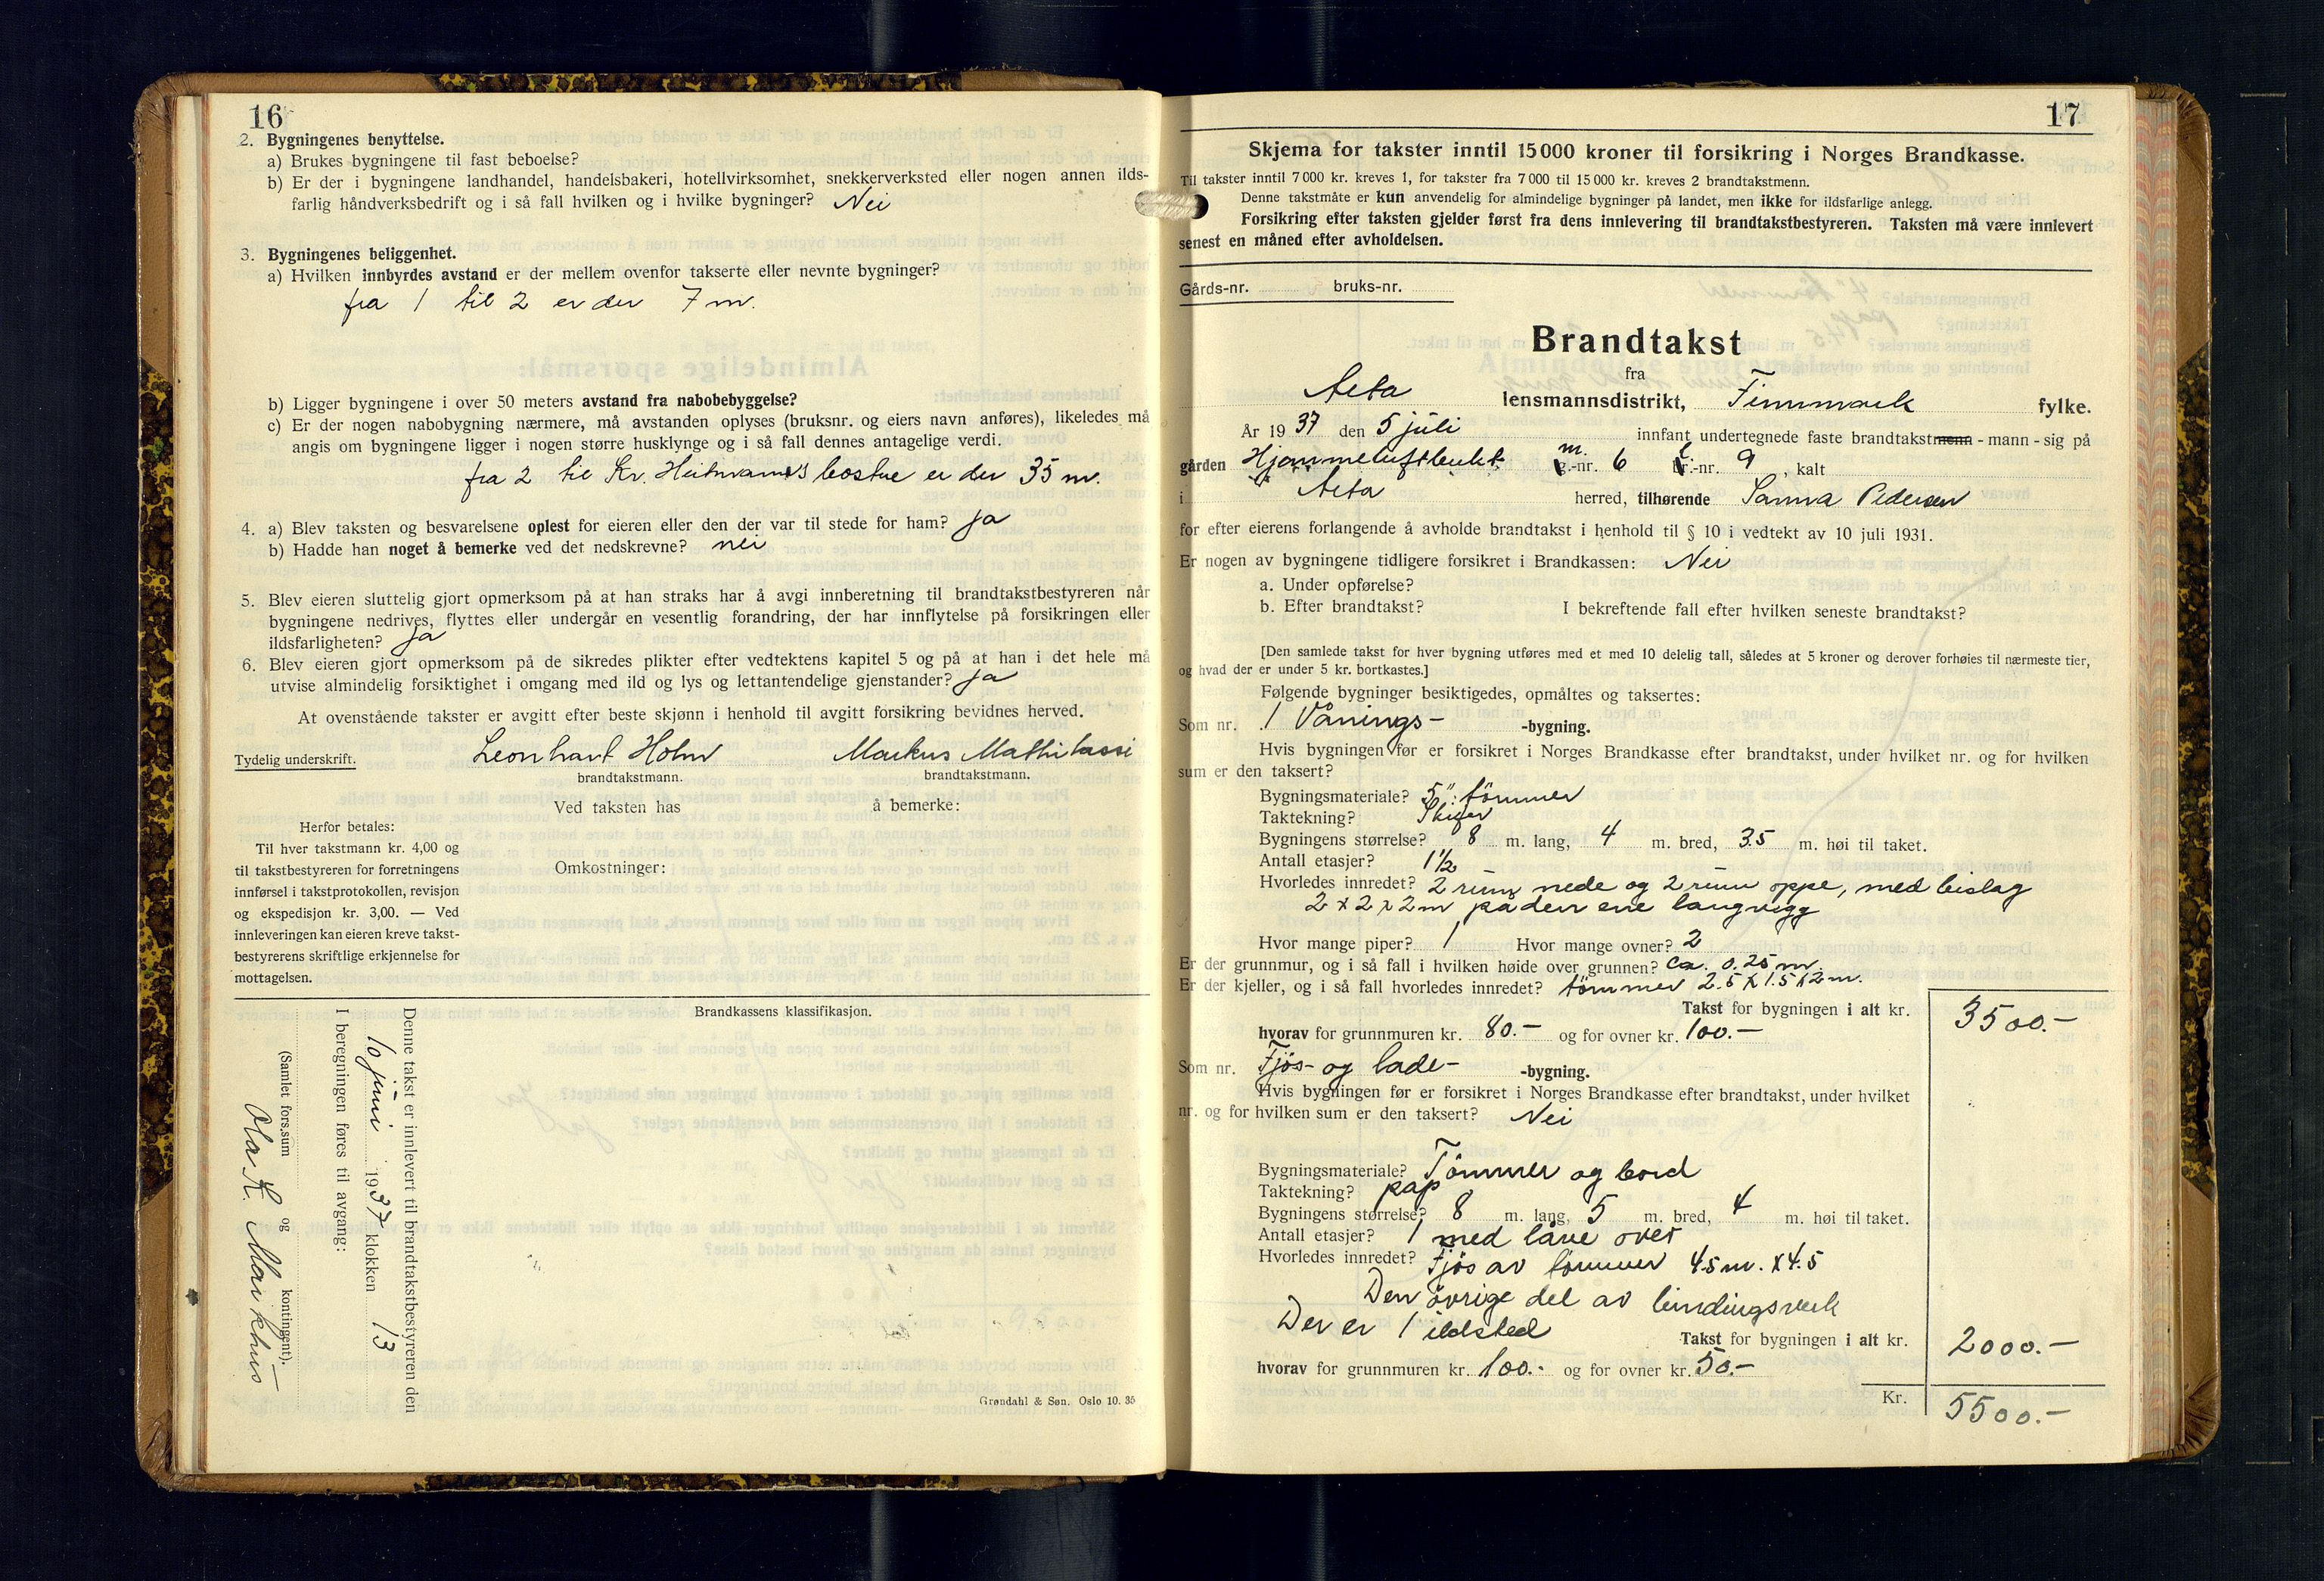 16
2. Bygningenes benyttelse.
a) Brukes bygningene til fast beboelse?
b) Er der i bygningene landhandel, handelsbakeri, hotellvirksomhet, snekkerverksted eller nogen annen ilds-
farlig håndverksbedrift og i så fall hvilken og i hvilke bygninger? Nei
3. Bygningenes beliggenhet.
a) Hvilken innbyrdes avstand er der mellem ovenfor takserte eller nevnte bygninger?
fra 1 til 2 er der 7 m.
b) Ligger bygningene i over 50 meters avstand fra nabobebyggelse?
c) Er der nogen nabobygning nærmere, må avstanden oplyses (bruksnr. og eiers navn anføres), likeledes må
angis om bygningene ligger i nogen større husklynge og i så fall dennes antagelige verdi.
fra 2 til Kr. bostue er der 35 m.
4. a) Blev taksten og besvarelsene oplest for eieren eller den der var til stede for ham? ja
b) Hadde han noget å bemerke ved det nedskrevne? nei
5. Blev eieren sluttelig gjort opmerksom på at han straks har å avgi innberetning til brandtakstbestyreren når
bygningene nedrives, flyttes eller undergår en vesentlig forandring, der har innflytelse på forsikringen eller
ildsfarligheten? ja
6. Blev eieren gjort opmerksom på de sikredes plikter efter vedtektens kapitel 5 og på at han i det hele må
utvise almindelig forsiktighet i omgang med ild og lys og lettantendelige gjenstander? ja
At ovenstående takster er avgitt efter beste skjønn i henhold til avgitt forsikring bevidnes herved.
Tydelig underskrift. Leonhart Holm Markus Mathilassi
brandtakstmann. brandtakstmann.
Ved taksten has å bemerke:
Herfor betales:
Til hver takstmann kr. 4,00 og
til takstbestyreren for forretningens
innførsel i takstprotokollen, revisjon
og ekspedisjon kr. 3,00. — Ved
innleveringen kan eieren kreve takst-
bestyrerens skriftlige erkjennelse for
mottagelsen.
Omkostninger:
Brandkassens klassifikasjon.
Denne takst er innlevert til brandtakstbestyreren den
10 juni 1937 klokken 13
I beregningen føres til avgang:
(Samlet fors.sum og kontingent).
Ola K. Markhus
Grøndahl & Søn. Oslo 10. 35
17
Skjema for takster inntil 15000 kroner til forsikring i Norges Brandkasse.
Til takster inntil 7 000 kr. kreves 1, for takster fra 7 000 til 15 000 kr. kreves 2 brandtakstmenn.
Denne takstmåte er kun anvendelig for almindelige bygninger på landet, men ikke for ildsfarlige anlegg.
Forsikring efter taksten gjelder først fra dens innlevering til brandtakstbestyreren. Taksten må være innlevert
senest en måned efter avholdelsen.
Gårds-nr. bruks-nr.
Brandtakst
fra
Alta lensmannsdistrikt, Finnmark fylke.
År 1937 den 5 juli innfant undertegnede faste brandtakstmenn - mann - sig på
gården Hjemmeluftbukt m.-nr. 6 l.-nr. 9, kalt
i Alta herred, tilhørende Sanna Pedersen
for efter eierens forlangende å avholde brandtakst i henhold til § 10 i vedtekt av 10 juli 1931.
Er nogen av bygningene tidligere forsikret i Brandkassen: Nei
a. Under opførelse?
b. Efter brandtakst? I bekreftende fall efter hvilken seneste brandtakst?
[Den samlede takst for hver bygning utføres med et med 10 delelig tall, således at 5 kroner og derover forhøies til nærmeste tier,
og hvad der er under 5 kr. bortkastes.]
Følgende bygninger besiktigedes, opmåltes og taksertes:
Som nr. 1 Vånings- -bygning.
Hvis bygningen før er forsikret i Norges Brandkasse efter brandtakst, under hvilket nr. og for hvilken
sum er den taksert?
Bygningsmateriale? 5" tömmer
Taktekning? Skifer
Bygningens størrelse? 8 m. lang, 4 m. bred, 3.5 m. høi til taket.
Antall etasjer? 1½
Hvorledes innredet? 2 rum nede og 2 rum oppe, med bislag
2 x 2 x 2 m på den ene langvegg
Hvor mange piper? 1 Hvor mange ovner? 2
Er der grunnmur, og i så fall i hvilken høide over grunnen? ca. 0.25 m.
Er der kjeller, og i så fall hvorledes innredet? tömmer 2.5 x 1.5 x 2 m.
Takst for bygningen i alt kr. 3500.-
hvorav for grunnmuren kr. 80.- og for ovner kr. 100.-
Som nr. Fjös- og lade- -bygning.
Hvis bygningen før er forsikret i Norges Brandkasse efter brandtakst, under hvilket
nr. og for hvilken sum er den taksert? Nei
Bygningsmateriale? Tömmer og bord
Taktekning? pap
Bygningens størrelse? 8 m. lang, 5 m. bred, 4 m. høi til taket.
Antall etasjer? 1 med låve over
Hvorledes innredet? Fjös av tömmer 4.5 m. x 4.5
Den övrige del av bindingsverk
Der er 1 ildsted Takst for bygningen i alt kr. 2000.-
hvorav for grunnmuren kr. 100.- og for ovner kr. 50.-
Kr. 5500.-